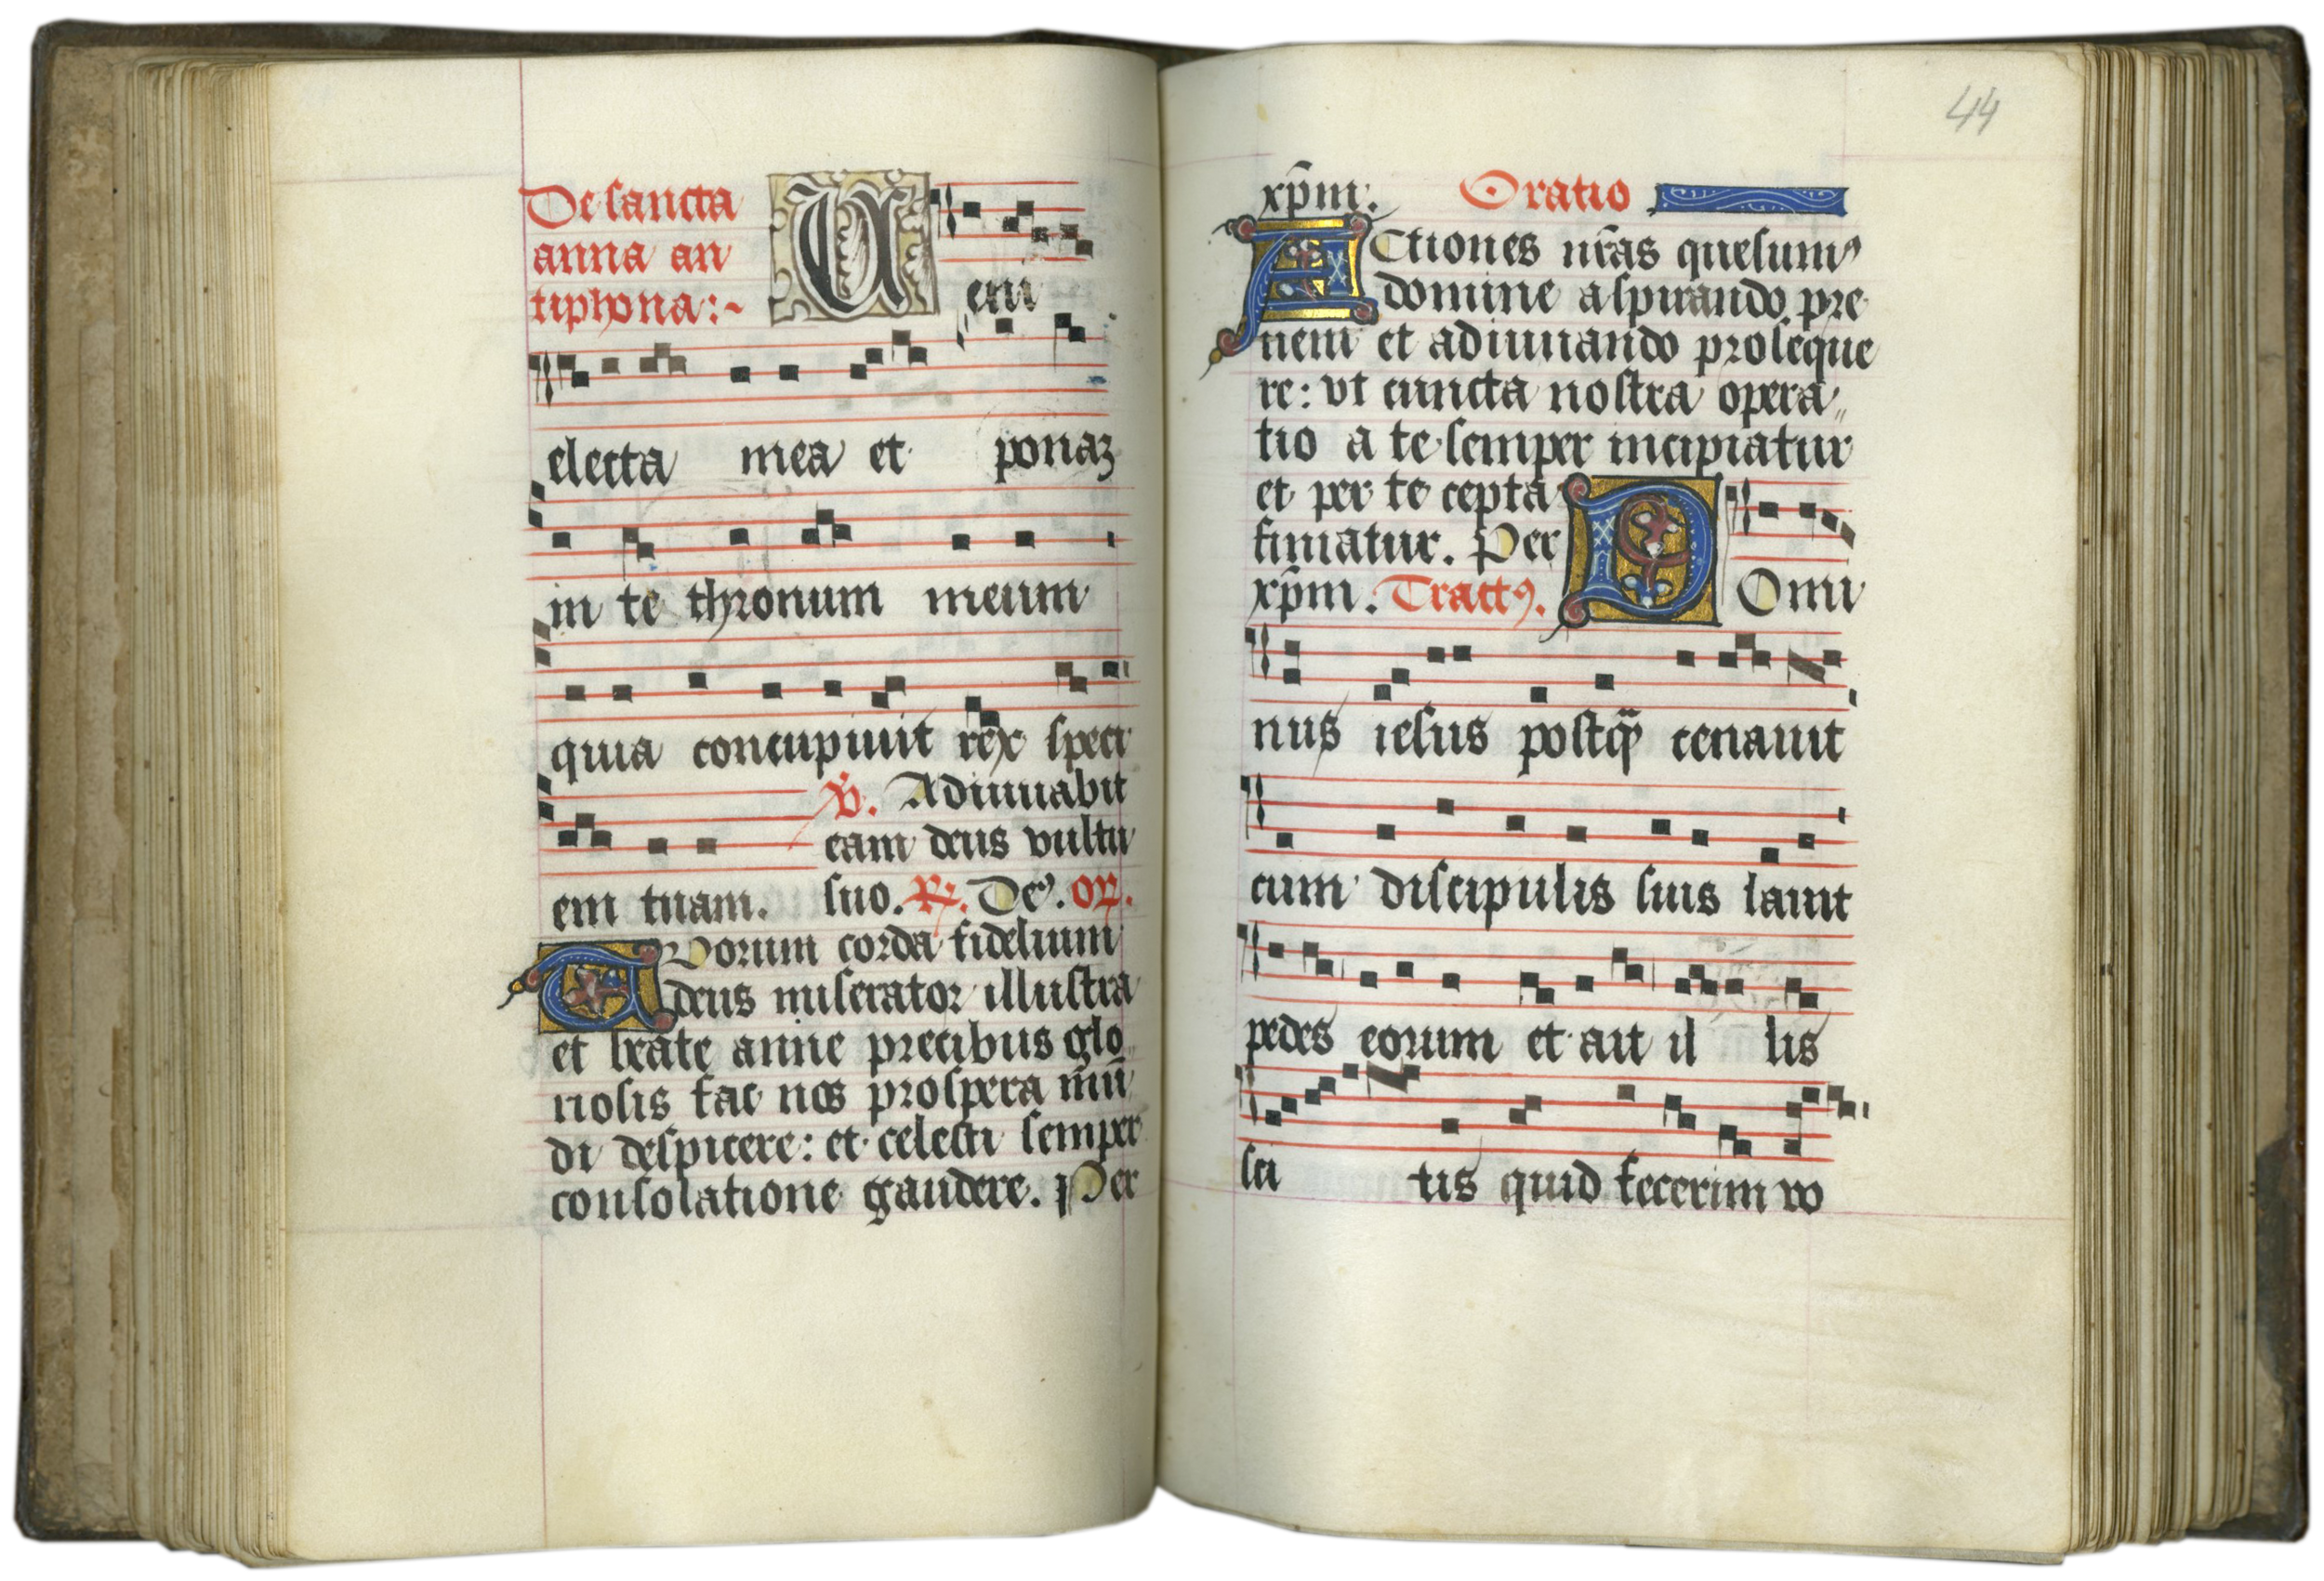 De sancta
anna an
tiphona:~
Ueni
electa mea et ponaʒ
in te thronum meum
quia concupiuit rex speci
em tuam.
℣. Adiuuabit
eam deus vultu
suo. ℟. De⁹. or̃.
Tuorum corda fidelium
deus miserator illustra
et beate anne precibus glo
riosis fac nos prospera mũ
di despicere: et celesti semper
consolatione gaudere. Per
44
xp̄m. Oratio
Actiones nr̄as quesum⁹
domine aspirando pre
ueni et adiuuando proseque
re: vt cuncta nostra opera
tio a te semper incipiatur
et per te cepta
finiatur. Per
xp̄m. Tract⁹.
Domi
nus iesus postq̃ cenauit
cum discipulis suis lauit
pedes eorum et ait il lis
sci tis quid fecerim vo